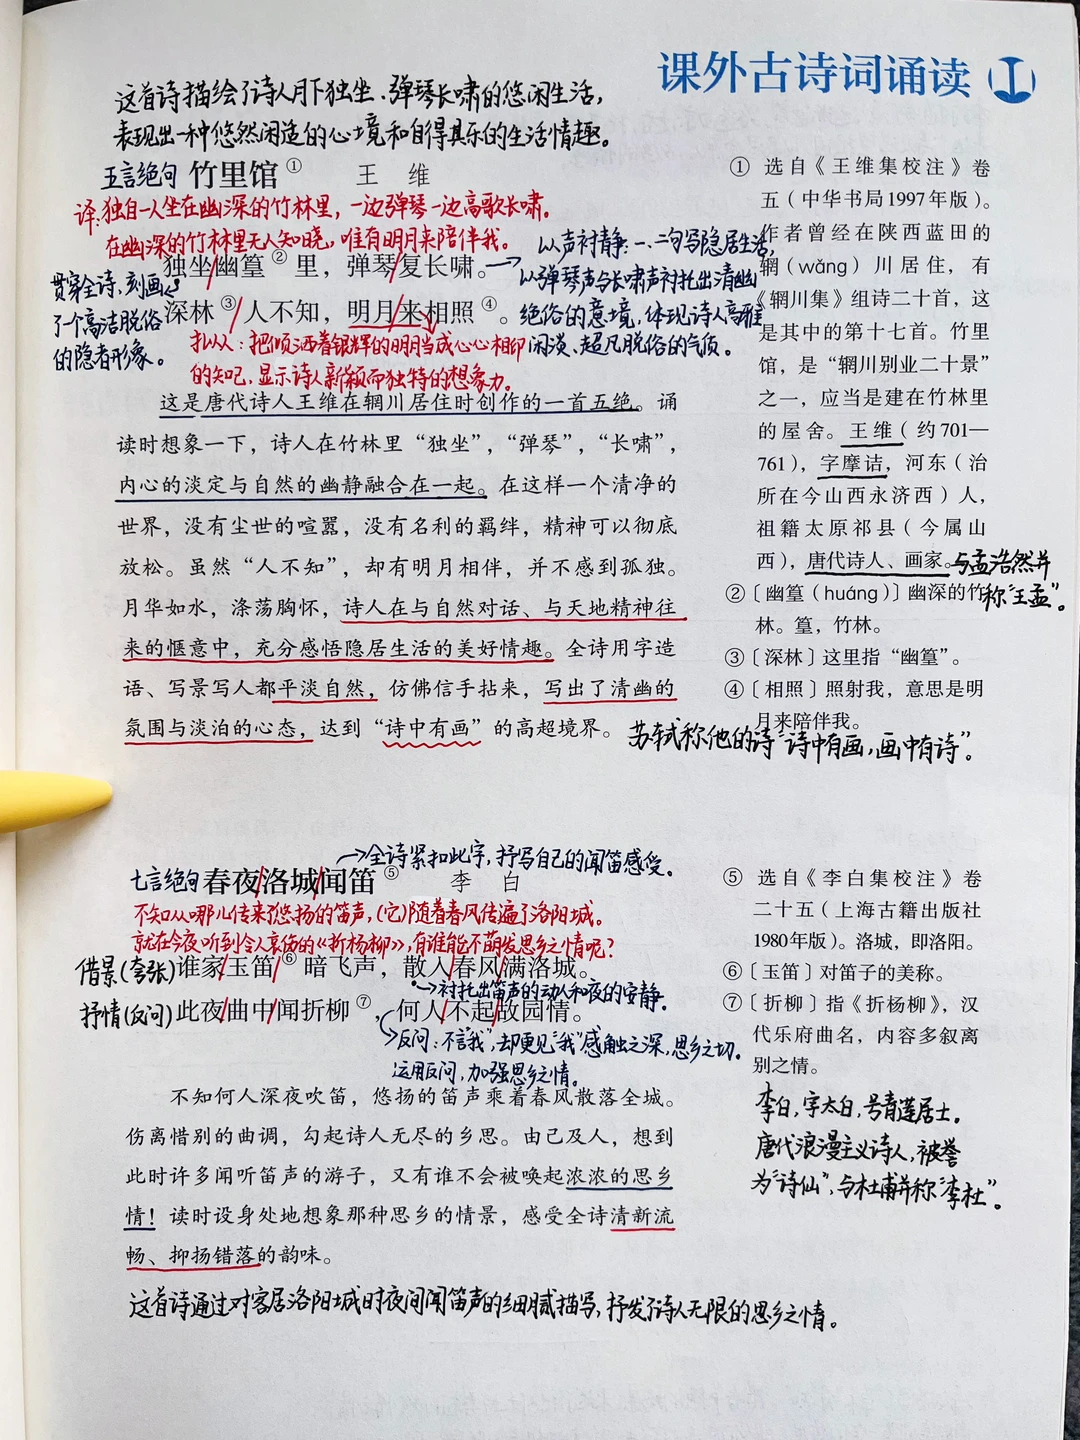 课外古诗词诵读
这首诗描绘了诗人月下独坐、弹琴长啸的悠闲生活，
表现出一种悠然闲适的心境和自得其乐的生活情趣。
五言绝句 竹里馆① 王 维
译：独自一人坐在幽深的竹林里，一边弹琴一边高歌长啸。
在幽深的竹林里无人知晓，唯有明月来陪伴我。
独坐/幽篁② 里，弹琴/复长啸。→
深林③/人不知，明月/来相照④。
以声衬静：一、二句写隐居生活，
以弹琴声与长啸声衬托出清幽
绝俗的意境，体现诗人高雅
闲淡、超凡脱俗的气质。
贯穿全诗、刻画
了个高洁脱俗
的隐者形象。
拟人：把倾洒着银辉的明月当成心心相印
的知己，显示诗人新颖而独特的想象力。
这是唐代诗人王维在辋川居住时创作的一首五绝。诵
读时想象一下，诗人在竹林里“独坐”，“弹琴”，“长啸”，
内心的淡定与自然的幽静融合在一起。在这样一个清净的
世界，没有尘世的喧嚣，没有名利的羁绊，精神可以彻底
放松。虽然“人不知”，却有明月相伴，并不感到孤独。
月华如水，涤荡胸怀，诗人在与自然对话、与天地精神往
来的惬意中，充分感悟隐居生活的美好情趣。全诗用字造
语、写景写人都平淡自然，仿佛信手拈来，写出了清幽的
氛围与淡泊的心态，达到“诗中有画”的高超境界。
苏轼称他的诗“诗中有画，画中有诗”。
① 选自《王维集校注》卷
五（中华书局1997年版）。
作者曾经在陕西蓝田的
辋（wǎng）川居住，有
《辋川集》组诗二十首，这
是其中的第十七首。竹里
馆，是“辋川别业二十景”
之一，应当是建在竹林里
的屋舍。王维（约701—
761），字摩诘，河东（治
所在今山西永济西）人，
祖籍太原祁县（今属山
西），唐代诗人、画家。与孟浩然并
称“王孟”。
②〔幽篁（huáng）〕幽深的竹
林。篁，竹林。
③〔深林〕这里指“幽篁”。
④〔相照〕照射我，意思是明
月来陪伴我。
→全诗紧扣此字，抒写自己的闻笛感受。
七言绝句 春夜/洛城/闻笛⑤ 李 白
不知从哪儿传来了悠扬的笛声，（它）随着春风传遍了洛阳城。
就在今夜听到令人哀伤的《折杨柳》，有谁能不萌发思乡之情呢？
借景（夸张）谁家/玉笛/⑥暗飞声，散入/春风/满洛城。
→衬托出笛声的动人和夜的安静。
抒情（反问）此夜/曲中/闻折柳⑦，何人/不起/故园情。
→反问：不言“我”，却更见“我”感触之深，思乡之切。
运用反问，加强思乡之情。
不知何人深夜吹笛，悠扬的笛声乘着春风散落全城。
伤离惜别的曲调，勾起诗人无尽的乡思。由己及人，想到
此时许多闻听笛声的游子，又有谁不会被唤起浓浓的思乡
情！读时设身处地想象那种思乡的情景，感受全诗清新流
畅、抑扬错落的韵味。
这首诗通过对客居洛阳城时夜间闻笛声的细腻描写，抒发了诗人无限的思乡之情。
⑤ 选自《李白集校注》卷
二十五（上海古籍出版社
1980年版）。洛城，即洛阳。
⑥〔玉笛〕对笛子的美称。
⑦〔折柳〕指《折杨柳》，汉
代乐府曲名，内容多叙离
别之情。
李白，字太白，号青莲居士。
唐代浪漫主义诗人，被誉
为“诗仙”，与杜甫并称“李杜”。